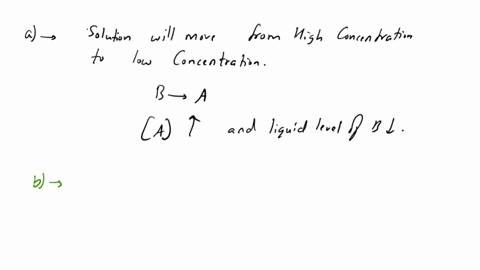 a) → Solution will move from High Concentration
to low Concentration.
B → A
(A) ↑ and liquid level of B ↓.
b) →